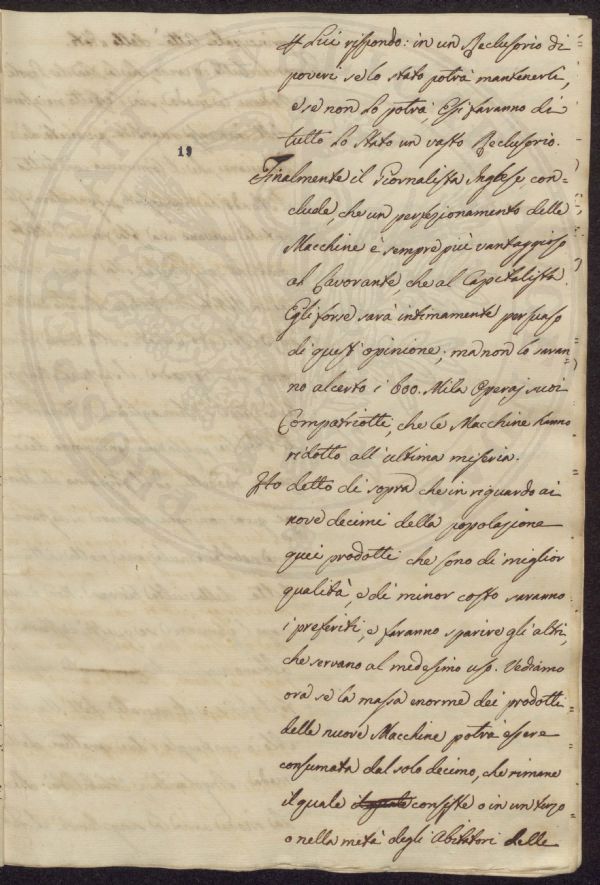 19
A Lui rispondo: in un Reclusorio di
poveri se lo stato potrà mantenerli,
e se non lo potrà, Essi faranno di
tutto lo Stato un vasto Reclusorio.
Finalmente il Giornalista Inglese con=
clude, che un perfezionamento delle
Macchine è sempre più vantaggioso
al Lavorante, che al Capitalista.
Egli forse sarà intimamente persuaso
di quest'opinione; ma non lo saran=
no al certo i 600. Mila Operaj suoi
Compatriotti, che le Macchine hanno
ridotto all'ultima miseria.
Ho detto di sopra che in riguardo ai
nove decimi della popolazione
quei prodotti che sono di miglior
qualità, e di minor costo saranno
i preferiti, e faranno sparire gli altri,
che servano al medesimo uso. Vediamo
ora se la massa enorme dei prodotti
delle nuove Macchine potrà essere
consumata dal solo decimo, che rimane
il quale consiste o in un terzo
o nella metà degli Abitatori delle